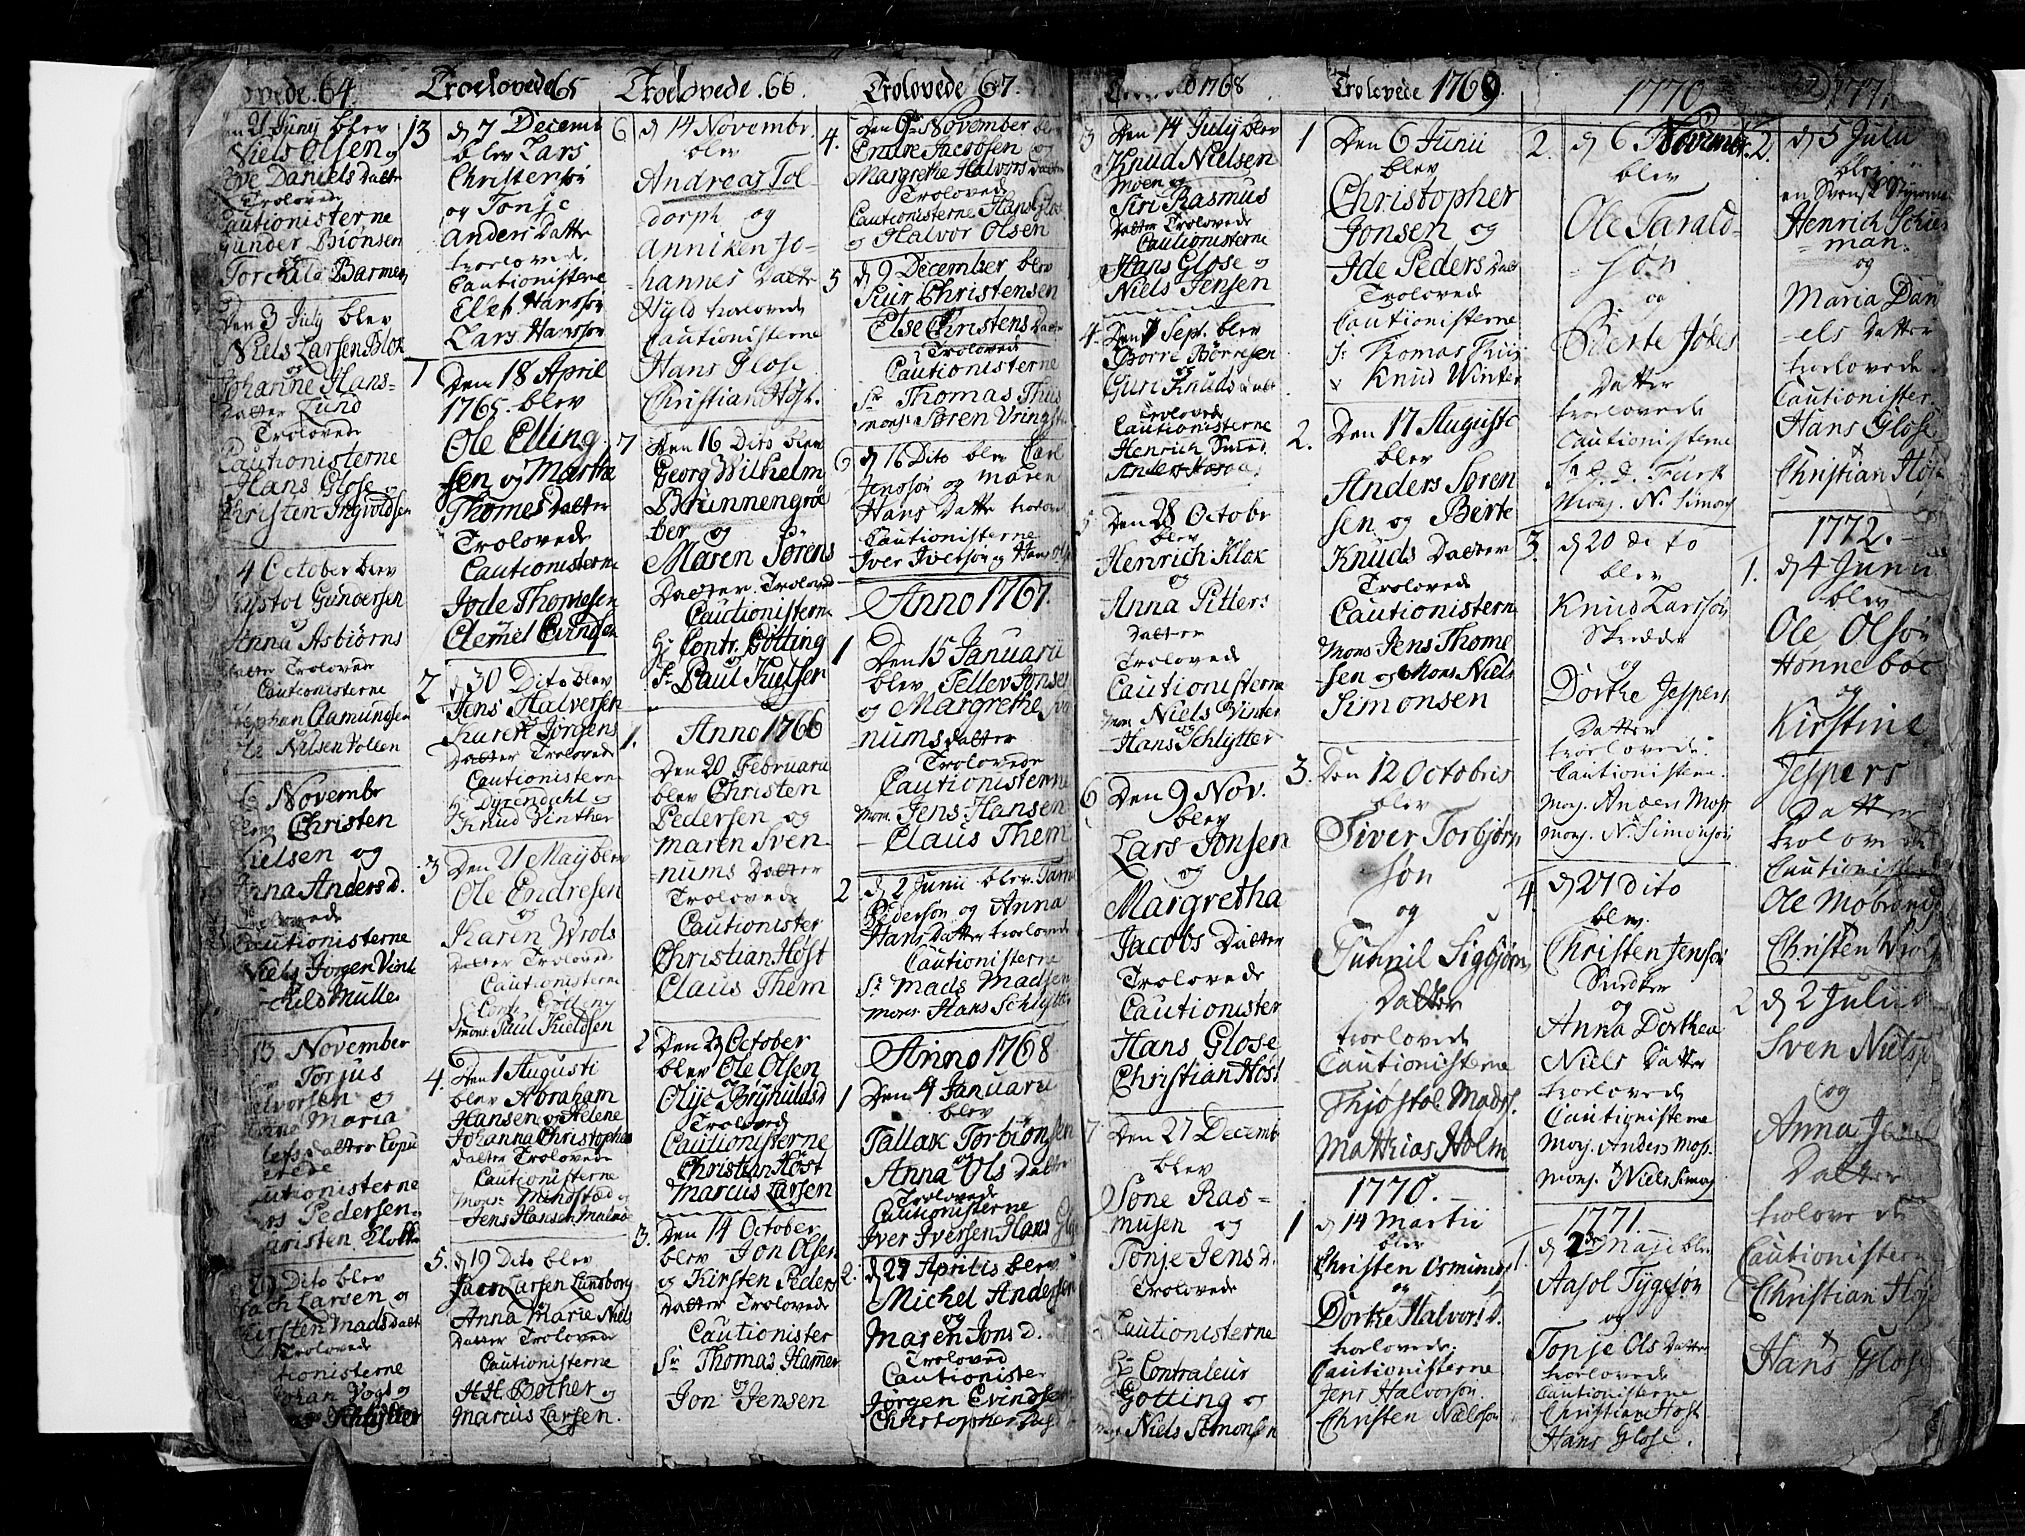 ovede. 64.
21 Junij blev
Niels Olsen og
Daniels Datter
Trolovede
Cautionisterne
Gunder Biønsen
og
Torchild Barmen
Den 3 July blev
Niels Larsen Blok
og
Johanne Hans-
Datter Lund
Trolovede
Cautionisterne
Hans Glose og
Christen Ingvoldsen
4 October blev
Gundersen
og
Anna Asbiørns
Datter Trolovede
Cautionisterne
Stephan Aamundsen
Ole Nilsen Vollen
Novembr
blev Christen
Nielsen og
Anna Anders d.
Trolovede
Cautionisterne
Niels Jørgen Vinth
Muller
13 November
blev Torjus
og
Maria
datter Copu
lerede
Cautionisterne
Lars Pedersen og
Christen Klotte
Dito blev
Zach Larsen og
Kirsten Mads Datt
Trolovede
Cautionisterne
Johan Vogt og
Schlytter
Troelovede 65
13 d 7 Decemb
blev Lars
Christensøn
og Tonje
Anders Datter
troelovede.
Cautionisterne
Elef Hansson
Lars Hansson
1 Den 18 April
1765. blev
Ole Elling-
sen og Martha
Thomes Datter
Trolovede
Cautionisterne
Jode Thomesen
Clemet Evindsen
2 d 30 Dito blev
Jens Halversen
og
Karen Jørgens
Datter Trolovede
Cautionisterne
Hr Dyrendahl og
Knud Vinther
3 Den 21 Maij blev
Ole Endresen
og
Karen Wrols
Datter Trolovede
Cautionisterne
Hr Contr. Götting
Mons. Paul Kieldsen
4. Den 1 Augusti
blev Abraham
Hansen og Helene
Johanna Christophers
Datter Trolovede
Cautionisterne
Mons. Mindstæd og
Jens Hansen Malmøe
5. d 19 Dito blev
Zach Larsen Lundborg
og
Anna Marie Niels
Datter Trolovede
Cautionisterne
H. H. Bother og
Marcus Larsen.
Troelovede. 66.
6 d 14 Novembr.
blev
Andreas Tol-
dorph og
Anniken Jo-
hannes Datter
Hyld troelovede
Cautionisterne
Hans Glose
Christian Høst.
7 Den 16 Dito blev
Georg Wilhelm
Brünnengrøe
ber og
Maren Sørens
Datter Trolovd
Cautionisterne
Hr Contr. Götting
og
Sr Paul Kielsen
Anno 1766
1. Den 20 Februarii
blev Christen
Pedersen og
Maren Sven-
nums Datter
Trolovede
Cautionister
Christian Høst
Claus Them
2 Den 23 October
blev Ole Olsen
og
Olije Brÿnulds d
Trolovede
Cautionisterne
Christian Høst
Marcus Larsen
3. Den 14 October
blev Jon Olsen
og Kirsten Peders
Datter Trolovede
Cautionister
Sr Thomas Hammer
og
Jon Jensen
Trolovede 67.
4. Den 6te November blev
Endre Jacobsen og
Margrethe Halvors Datter
Trolovede
Cautionisterne Hans Glose
og Halvor Olsen
5 d 9 December blev
Siur Christensen
og
Else Christens Datter
Trolovede
Cautionisterne
Sr Thomas Thiis
Mons. Søren Vringst
6 d 16 Dito blev Carl
Jenssøn og Maren
Hans Datter trolov
Cautionisterne
Iver Iversøn og Hans
Anno 1767.
1 Den 15 Januarij
blev Tellev Jonsen
og Margrethe Sve
nums datter
Trolovede
Cautionisterne
Mons. Jens Hansen
Claus Them
2 d 2 Junii blev
Pedersøn og Anna
Hans Datter troelovede
Cautionisterne
Sr Mads Madsen
Mons. Hans Schlytter
Anno 1768
1 Den 4 Januarii
blev
Tallak Torbiønsen
og
Anna Ols Datter
Trolovede
Cautionisterne
Iver Iversen Hans Glo
2. d 27 Aprilis blev
Michel Andersen
og
Maren Jons d.
Trolovede
Cautionister
Jørgen Evindsen
Christopher
1768
3 Den 14 July blev
Knud Nielsen
Moen og
Siri Rasmus
Datter Trolovede
Cautionisterne
Hans Glose og
Niels Jensen
4. Den 7 Sept. blev
Borre Børresen
Guri Knuds Datt
Trolovede
Cautionisterne
Henrich Smed
5. Den 28 Octobr
blev
Henrich Klok
og
Anna Pitters
Datter
Trolovede
Cautionisterne
Mons. Niels Vinter
og
Hans Schlytter
6 Den 9 Nov.
blev
Lars Jonsen
og
Margretha
Jacobs Datter
Trolovede
Cautionister
Hans Glose
Christian Høst
7 Den 27 Decemb
blev
Søne Ras-
musen og
Tonje Jens d.
Trolovede
Cautionisterne
Hr Contraleur
Götting og
Niels Simonsen
Trolovede 1769
1 Den 6 Junii
blev
Christopher
Jonsen og
Ide Peders Datt
Trolovede
Cautionisterne
Sr Thomas Thiis
Knud Winter
2. Den 17 Auguste
blev
Anders Søren
sen og Berte
Knuds Datter
Trolovede
Cautionisterne
Mons Jens Thome
sen og Mons Niels
Simonsen
3. Den 12 Octobris
blev
Siver Torbjørn
søn
og
Gunnil Sigbjørns
Datter
troelovede
Cautionisterne
Thjøstol Mads.
Matthias Holm
1770.
1 d 14 Martii
blev
Christen Osmunds
og
Dorthe Halvors D.
troelovede.
Cautionisterne
Jens Halvorsøn.
Christen Nielsøn
1770
2. d 6 November
blev
Ole Tarald-
søn
og
Berte Joels
Datter
troelovede
Cautionisterne
Monsr. N. Simons
3. d 20 dito
blev
Knud Larssøn
Skrædde
og
Dorthe Jespers
Datter
troelovede.
Cautionisterne.
Mons. Anders Moss
Mons. N. Simonsøn
4. d 27 Dito
blev.
Christen Jenssøn
Snedker
og
Anna Dorthea
Niels Datter
troelovede
Cautionisterne
Monsr. Anders Moss.
Monsr. Niels Simons
1771.
1. d 2den Maji blev
Aasol Tygesøn
og
Tonje Ols Datter
troelovede
Cautionisterne
Christian Høst
Hans Glose.
1771
2. d 5 Julii
blev
en Svensk Styrma
Henrich Schier
man.
og
Maria Dan
els Datter
troelovede.
Cautionister.
Hans Glose
Christian Høst
1772.
1. d 4 Junii
blev
Ole Olsøn
Hønneboe
og
Kirstine
Jespers
Datter
trolovede
Cautionisterne
Ole Mobrond
Christen Wrol
2 d 2 Julii
Sven Niels
og
Anna
Datter
trolovede
Cautionistern
Christian Høst
Hans Glose